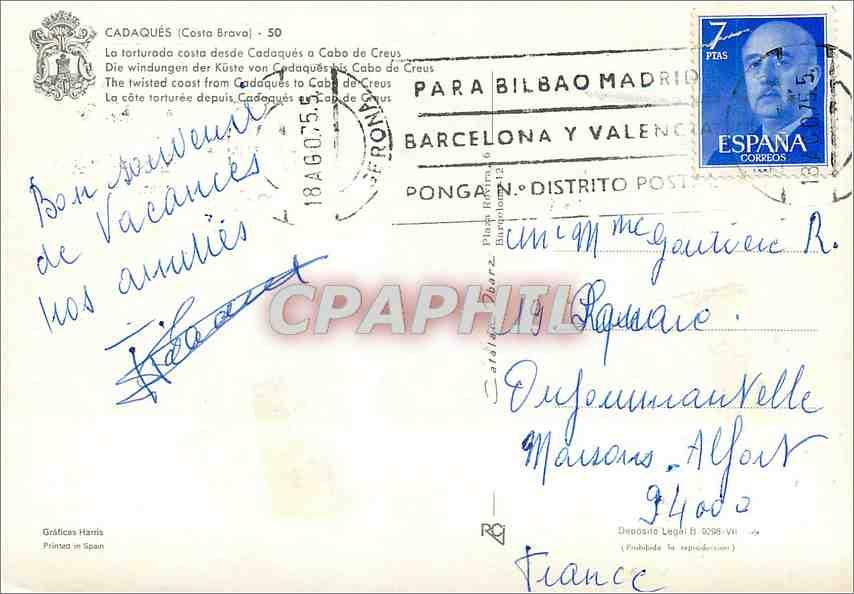 CADAQUÉS (Costa Brava) - 50
La torturada costa desde Cadaqués a Cabo de Creus
Die windungen der Küste von Cadaqués bis Cabo de Creus
The twisted coast from Cadaqués to Cabo de Creus
La côte torturée depuis Cadaqués a Cabo de Creus
18 AGO 75.5
GERONA
PARA BILBAO MADRID
BARCELONA Y VALENCIA
PONGA N.º DISTRITO POSTAL
7
PTAS
ESPAÑA
CORREOS
18 AGO 75.5
Bon souvenir
de Vacances
nos amitiés
Catalán Ibarz
Plaza Rovira, 6
Barcelona-12
Mme Goutière R.
19
Maisons-Alfort
94000
France
CPAPHIL
Gráficas Harris
Printed in Spain
Depósito Legal B. 9298-VII
(Prohibida la reproducción)